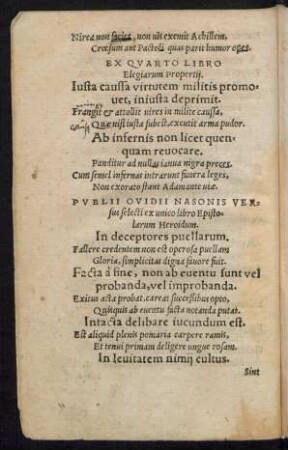 Nirea non facies, non uis exemit Achillem,
Crœsum aut Pactoli quas parit humor opes.
EX QVARTO LIBRO
Elegiarum Propertij.
Iusta caussa virtutem militis promo-
uet, iniusta deprimit.
Frangit & attollit uires in milite caussa,
Quæ nisi iusta subest, excutit arma pudor.
Ab infernis non licet quen-
quam reuocare.
Panditur ad nullas ianua nigra preces.
Cum semel infernas intrarunt funera leges,
Non exorato stant Adamante uiæ.
PVBLII OVIDII NASONIS VER-
sus selecti ex unico libro Episto-
larum Heroidum.
In deceptores puellarum.
Fallere credentem non est operosa puellam
Gloria, simplicitas digna fauore fuit.
Facta à fine, non ab euentu sunt vel
probanda, vel improbanda.
Exitus acta probat, careat successibus opto,
Quisquis ab euentu facta notanda putat.
Intacta delibare iucundum est.
Est aliquid plenis pomaria carpere ramis,
Et tenui primam deligere ungue rosam.
In leuitatem nimij cultus.
Sint